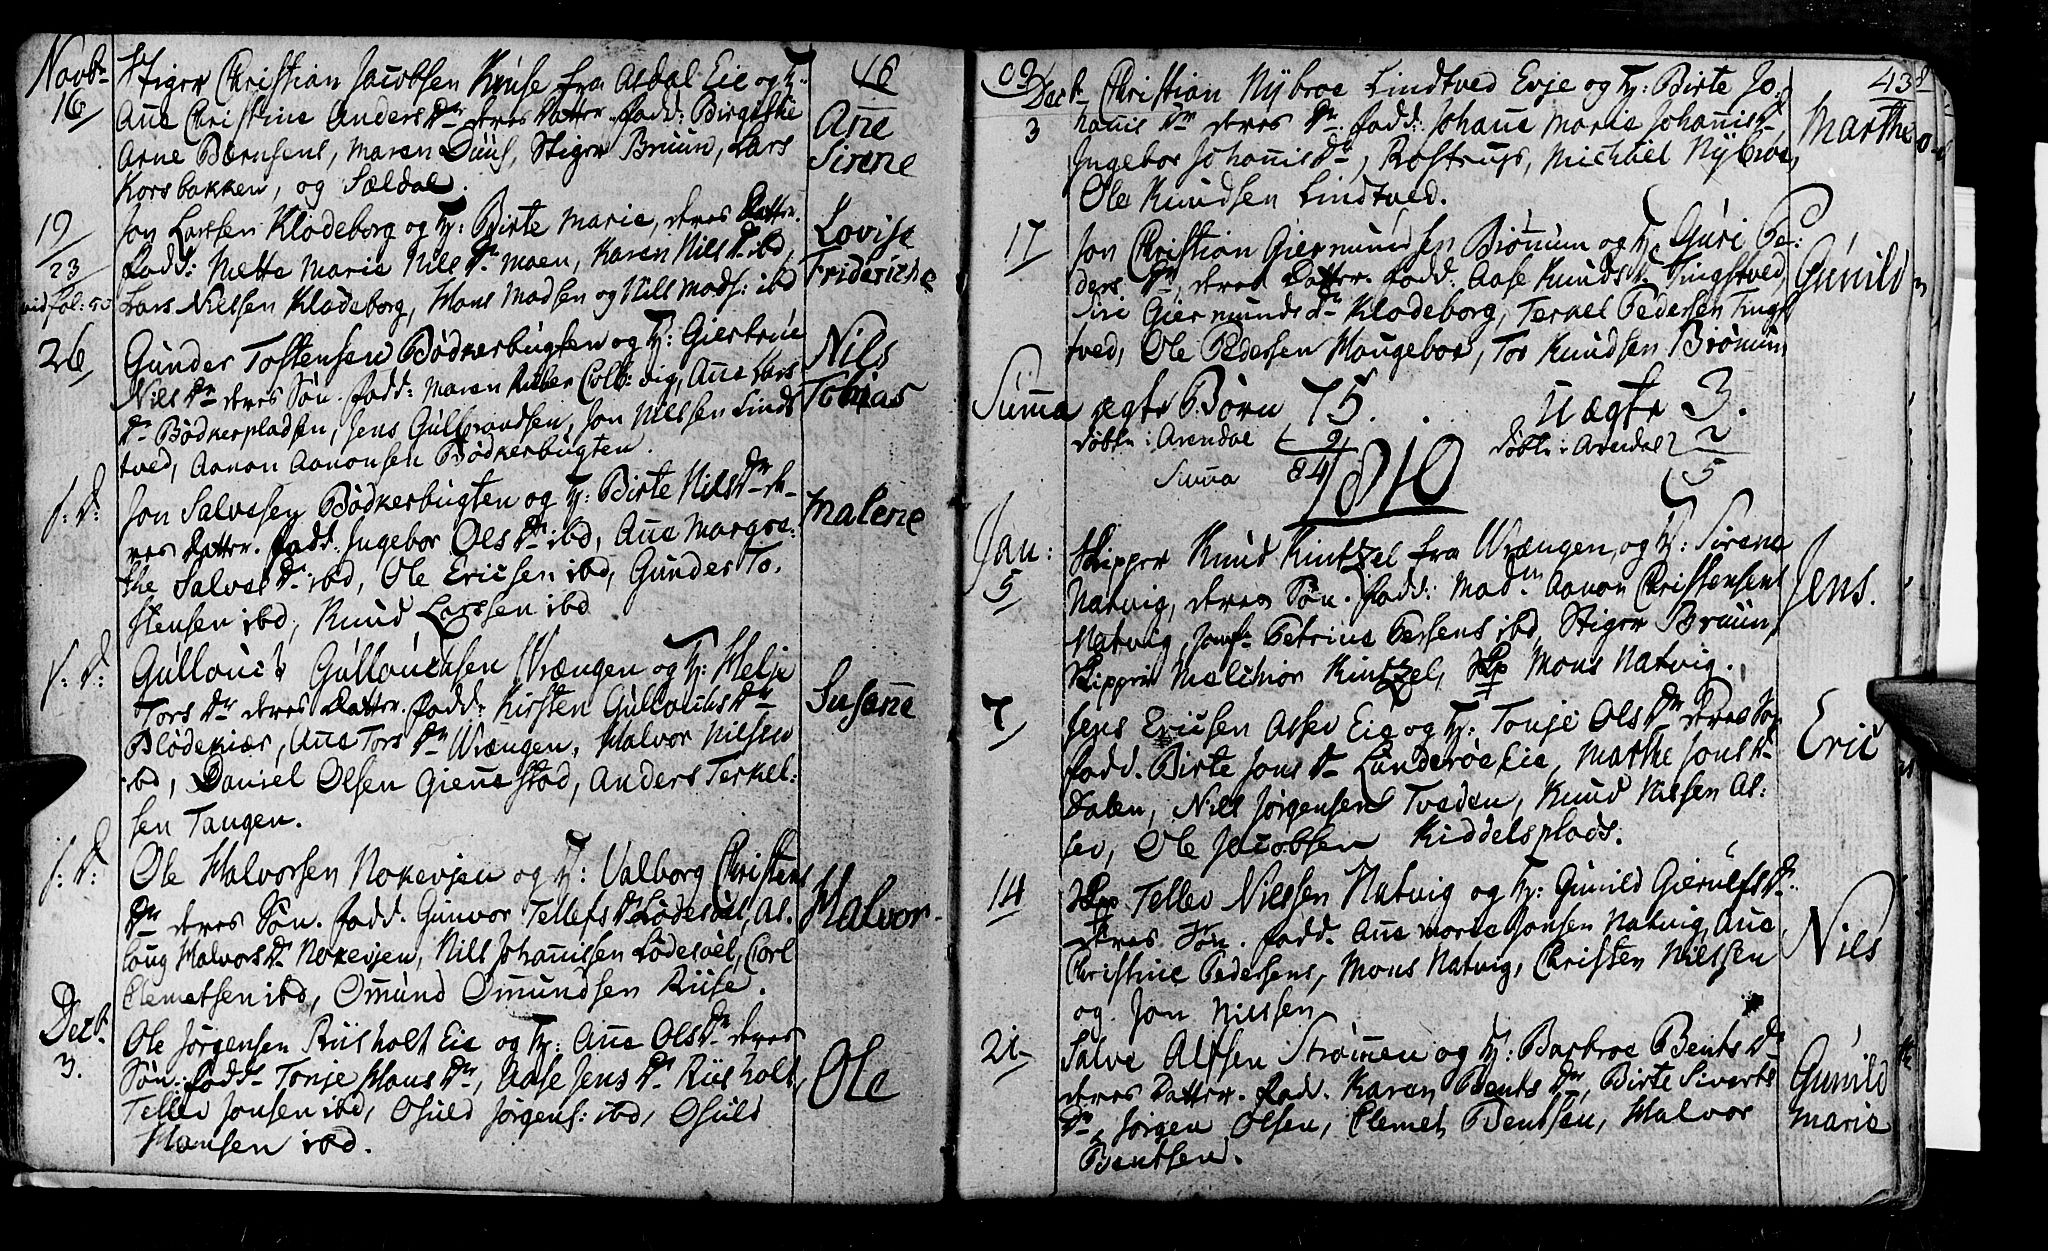 Novbr
16
Stiger Christian Jacobsen Kruse fra Asdal Eie og H:
Aṅe Christine Anders Dr deres Datter. fadd: Birgithe
Arne Bærnsens, Maren Duus, Stiger Bruun, Lars
Korsbakken, og Sældal.
Ane
Sirene
46
19/23
vid fol: 50
Jon Larssen Klodeborg og H: Birte Marie, deres Dattr.
fadd: Mette Marie Nills Dr Moen, Karen Nills Dr ibd,
Lars Nielsen Klodeborg, Hans Madsen og Nills Mads: ibd
Lovise
Frideriche
26
Gunder Tostensen Bödkerbugten og H: Giertrue
Nils Dr deres Sön. fadd: Maren Colb:dig, Aṅe Lars
Dr Bödkerpladsen, Jens Gulbrandsen, Jon Nielsen Lind
tved, Aanon Aanonsen Bödkerbugten.
Nils
Tobias
s: D:
Jon Salvesen Bödkerbugten og H: Birte Nils Dr de-
res Dattr. fadd: Ingebor Ols Dr ibd, Aṅe Margre:
the Salves Dr ibd, Ole Ericsen ibd, Gunder To.
stensen ibd, Knud Larssen ibd
Malene
s: D:
Gullouch Gullouchsen Wrængen og H: Helje
Tors Dr deres Dattr. fadd: Kirsten Gullouchs Dr
Blödekiær, Aṅe Tors Dr Wrængen, Halvor Nilsen
ibd, Daniel Olsen Gieṅestad, Anders Terkel:
sen Tangen.
Susaṅe
s: D:
Ole Halvorsen Nokevjen og H: Valborg Christens
Dr deres Sön. fadd. Gunvor Tellefs Dr Lödesöel, As.
loug Halvors Dr Nokevjen, Nills Johaṅisen Lödesöel, Carl
Clemetsen ibd, Oṁund Oṁundsen Riise.
Halvor
Decbr
3.
Ole Jörgensen Riisholt Eie og H: Aṅe Ols Dr deres
Sön. fadd. Tonje Hans Dr, Aase Jens Dr Riisholt,
Tellev Jonsen ibd, Osuld Jörgens: ibd, Osuld
Hansen ibd.
Ole
09
43
Decbr
3
Christian Nybroe Lindtved Evje og H: Birte Jo:
haṅis Dr deres Dr. fadd: Johaṅe Marie Johaṅis Dr,
Ingebor Johaṅis Dr, Rostrups, Michael Nybroe,
Ole Knudsen Lindtved.
Marthe
17
Jon Christian Giermundsen Bröṁum og H. Guri Pe:
ders Dr, deres Dattr. fadd: Aase Knuds Dr Tingstved,
Siri Giermunds Dr Klodeborg, Terkel Pedersen Tingst
tved, Ole Pedersen Haugeboe, Tor Knudsen Bröṁum
Gunild
Suṁa ægte Börn 75. Uægte 3.
döbte i Arendal 9 döbte i Arendal 2
Suṁa 84 5
1810
Jan:
5
Skipper Knud Kintzel fra Wrængen, og H: Sirene
Natvig, deres Sön. fadd: Madm Aanon Christensens
Natvig, Jomfr Petrine Persens ibd, Stiger Bruun,
Skipper Melchior Kintzel, Skp Mons Natvig.
Jens.
7
Jens Ericsen Assev Eie og H: Tonje Ols Dr deres Sön
fadd. Birte Jens Dr Lunderöe Eie, Marthe Jons Dr
Dalen, Nill Jörgensens Tveden, Knud Nilsen As:
sev, Ole Jacobsen Kiddelsplads.
Eric
14
Skp Tellev Nielssen Natvig og H: Gunild Gierulfs Dr.
deres Sön. fadd. Aṅe Marie Jonsen Natvig, Aṅe
Christine Pedersens, Mons Natvig, Christen Nielssen
og Jon Nielssen
Nils
21
Salve Alfsen Ströṁen og H: Barbroe Bents Dr
deres Dattr. fadd. Karen Bents Dr, Birte Siverts
Dr, Jörgen Olsen, Clemet Bentsen, Halvor
Bentsen.
Gunild
Marie